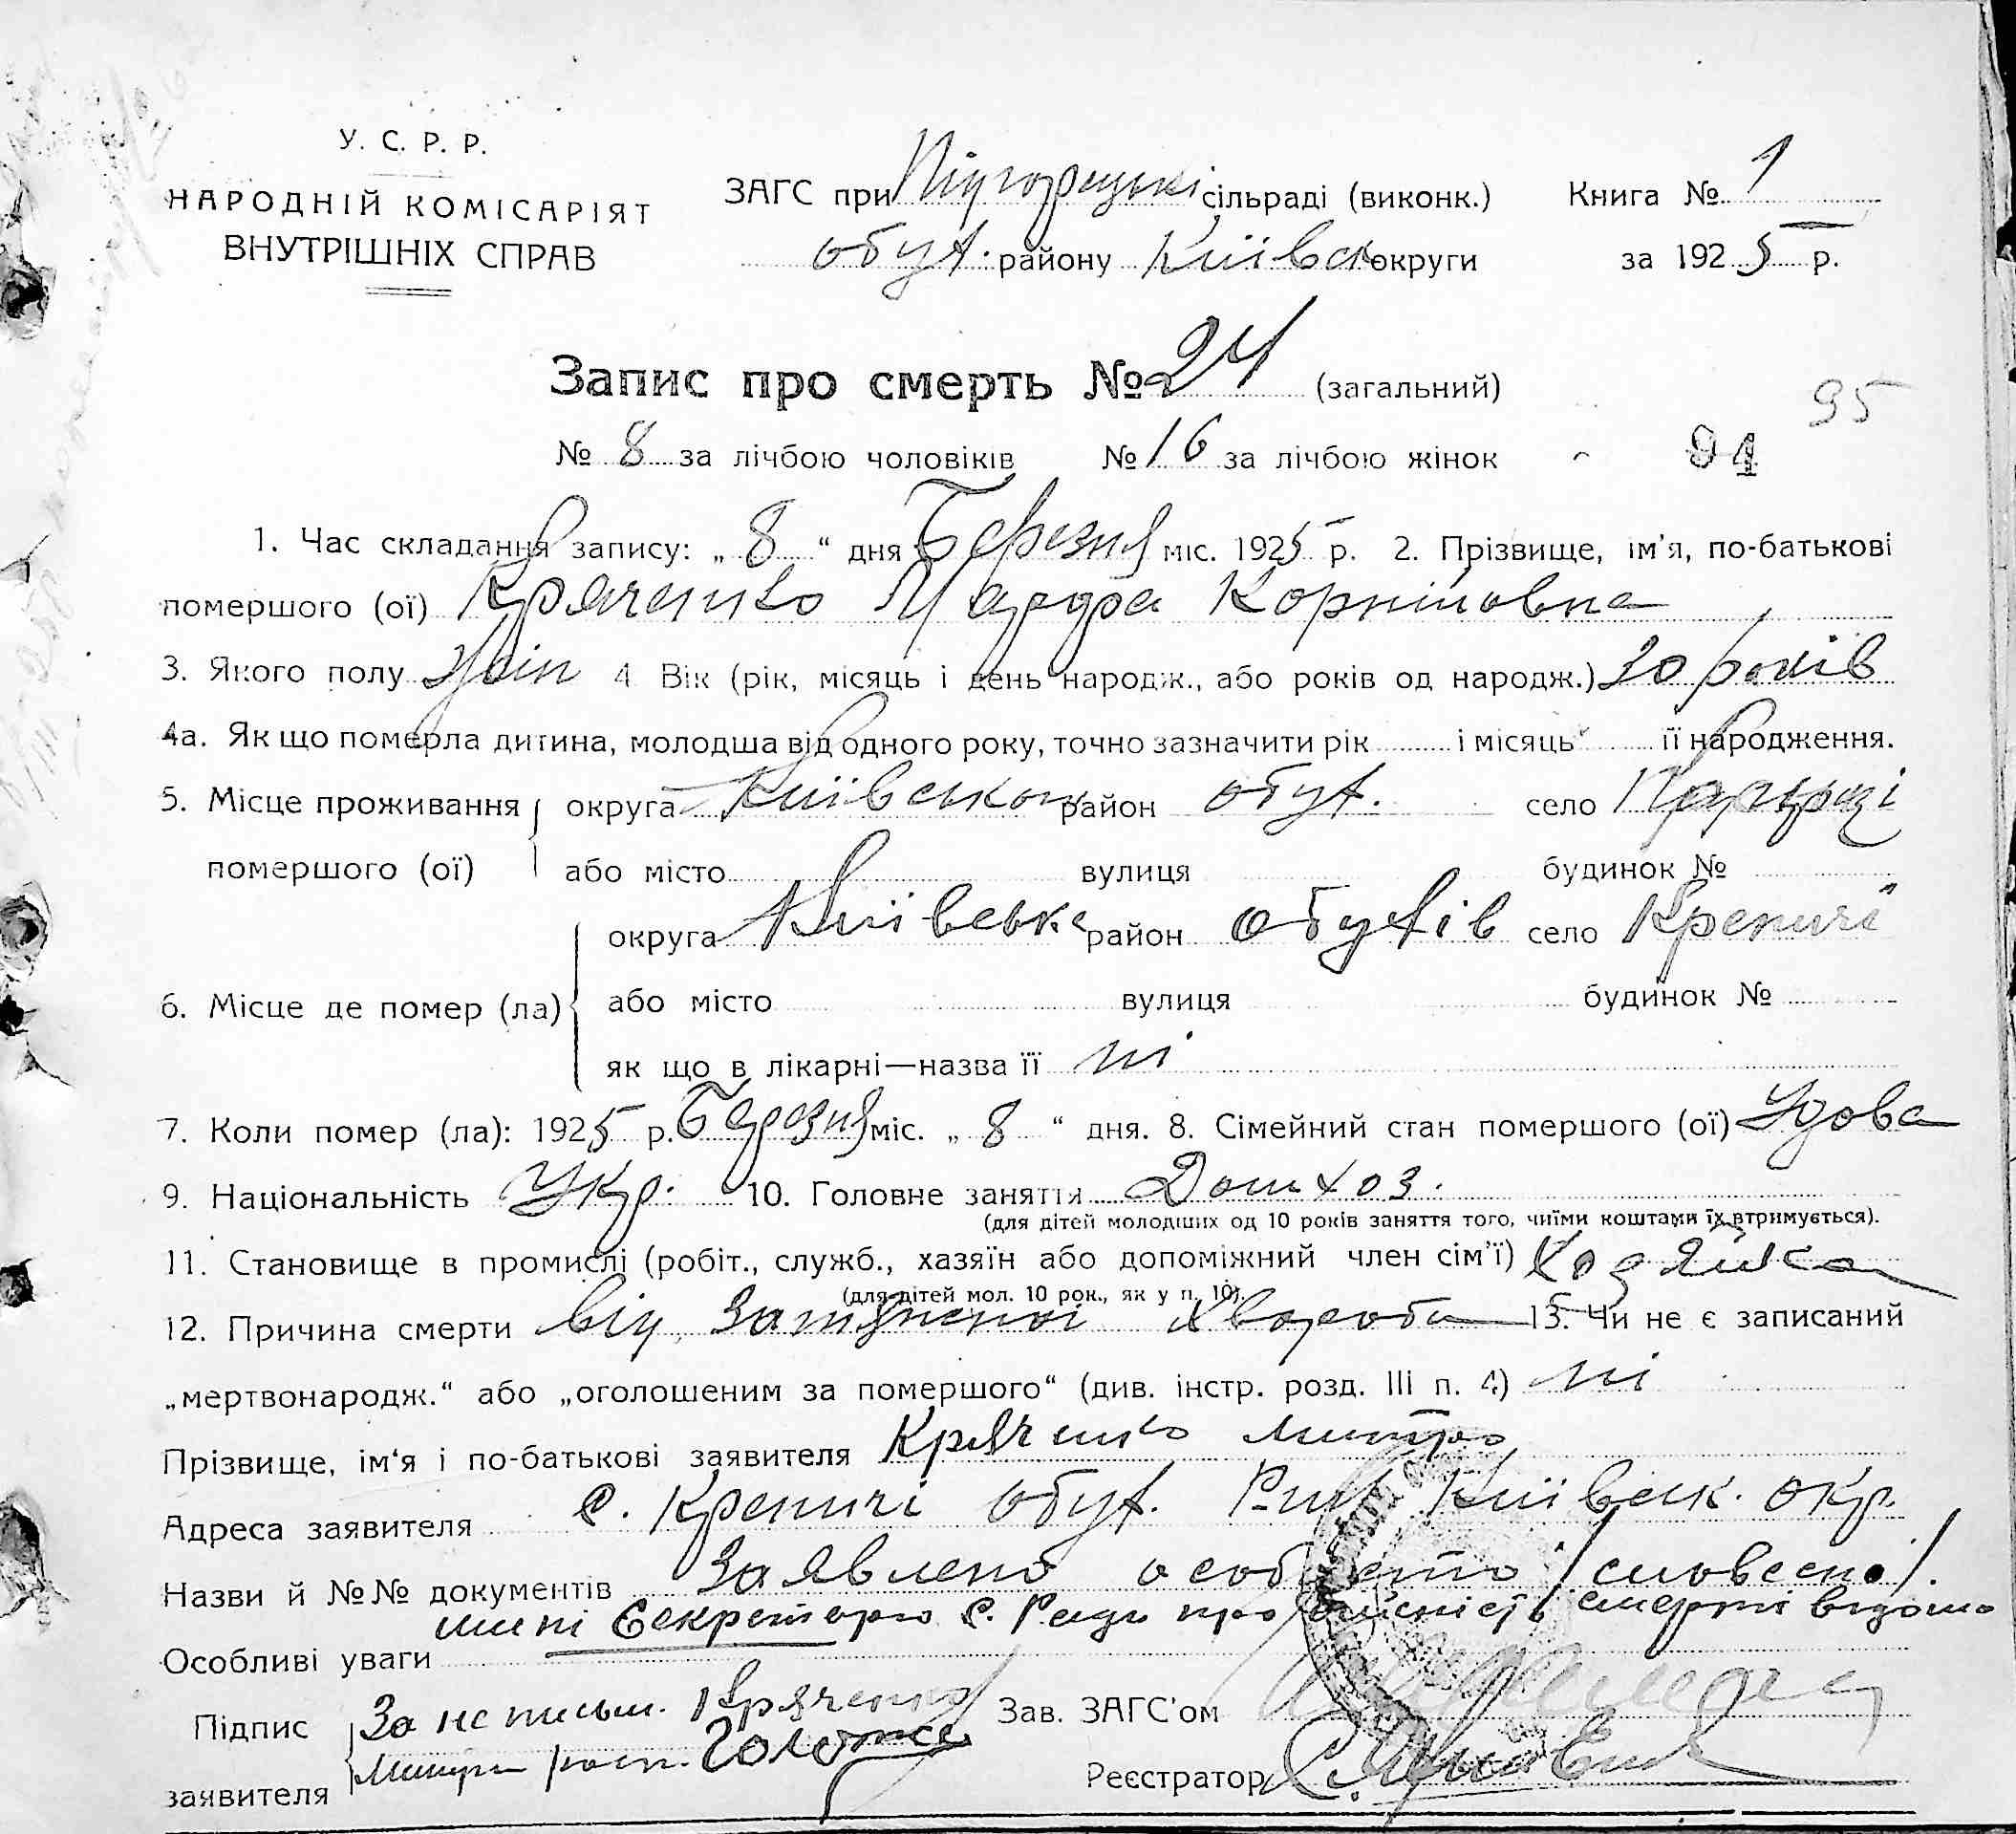 У. С. Р. Р.
НАРОДНІЙ КОМІСАРІЯТ
ВНУТРІШНІХ СПРАВ
ЗАГС при Підгорецькі сільраді (виконк.) Книга № 1
обух. району Київськ округи за 1925 р.
Запис про смерть № 24 (загальний)
95
№ 8 за лічбою чоловіків № 16 за лічбою жінок 94
1. Час складання запису: „ 8 “ дня Березня міс. 1925 р. 2. Прізвище, ім'я, по-батькові
помершого (ої) Кряченко Марфа Корніївна
3. Якого полу жін 4 Вік (рік, місяць і день народж., або років од народж.) років
4а. Як що померла дитина, молодша від одного року, точно зазначити рік і місяць її народження.
5. Місце проживання округа Київськои район обух. село
помершого (ої) або місто вулиця будинок №
округа Київська район обухів село Крепичі
6. Місце де помер (ла) або місто вулиця будинок №
як що в лікарні—назва її ні
7. Коли помер (ла): 1925 р. Березня міс. „ 8 “ дня. 8. Сімейний стан помершого (ої) Удова
9. Національність Укр. 10. Головне заняття Домхоз.
(для дітей молодших од 10 років заняття того, чиїми коштами їх втримується).
11. Становище в промислі (робіт., служб., хазяїн або допоміжний член сім'ї) Хозяйка
(для дітей мол. 10 рок., як у п. 10).
12. Причина смерти від хвороби 13. Чи не є записаний
„мертвонародж.“ або „оголошеним за помершого“ (див. інстр. розд. III п. 4) ні
Прізвище, ім'я і по-батькові заявителя Кряченко Митро
Адреса заявителя с. Крепичі обух. Київськ. окр.
Назви й №№ документів Заявлено особисто /словесно/.
мині Секретарю С. Ради про смерти відомо
Особливі уваги
Підпис За не письм. Кряченко Зав. ЗАГС'ом
заявителя Митра расп. Реєстратор